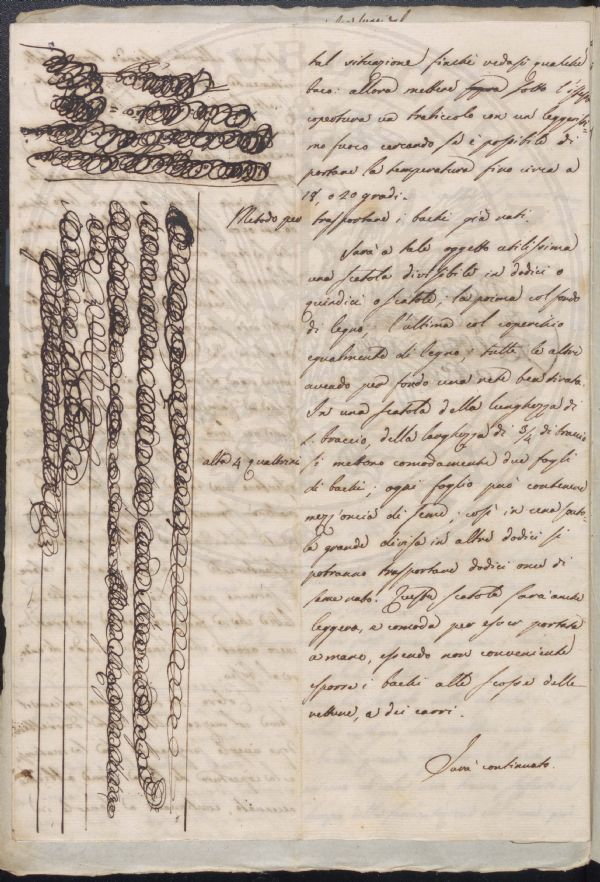 tal situazione finchè vedasi qualche
baco: allora mettere sotto l'istessa
copertura un traticcolo con un leggerissi=
mo fuoco cercando se è possibile di
portare la temperatura fino circa a
18, o 20 gradi.
Metodo per trasportare i bachi già nati.
Sarà a tale oggetto utilissima
una scatola divisibile in dodici o
quindici scatole; la prima col fondo
di legno; l'ultima col coperchio
egualmente di legno; tutte le altre
avendo per fondo una rete ben tirata.
In una scatola della lunghezza di
1. braccio, della larghezza di 3/4 di braccio
alta 4 quattrini si mettono comodamente due fogli
di bachi; ogni foglio può contenere
mezz'oncia di seme; così in una scato=
la grande divisa in altre dodici si
potranno trasportare dodici once di
seme nato. Questa scatola sarà anche
leggera, e comoda per esser portata
a mano, essendo non conveniente
esporre i bachi alle scosse delle
vetture, e dei carri.
Sarà continuato.